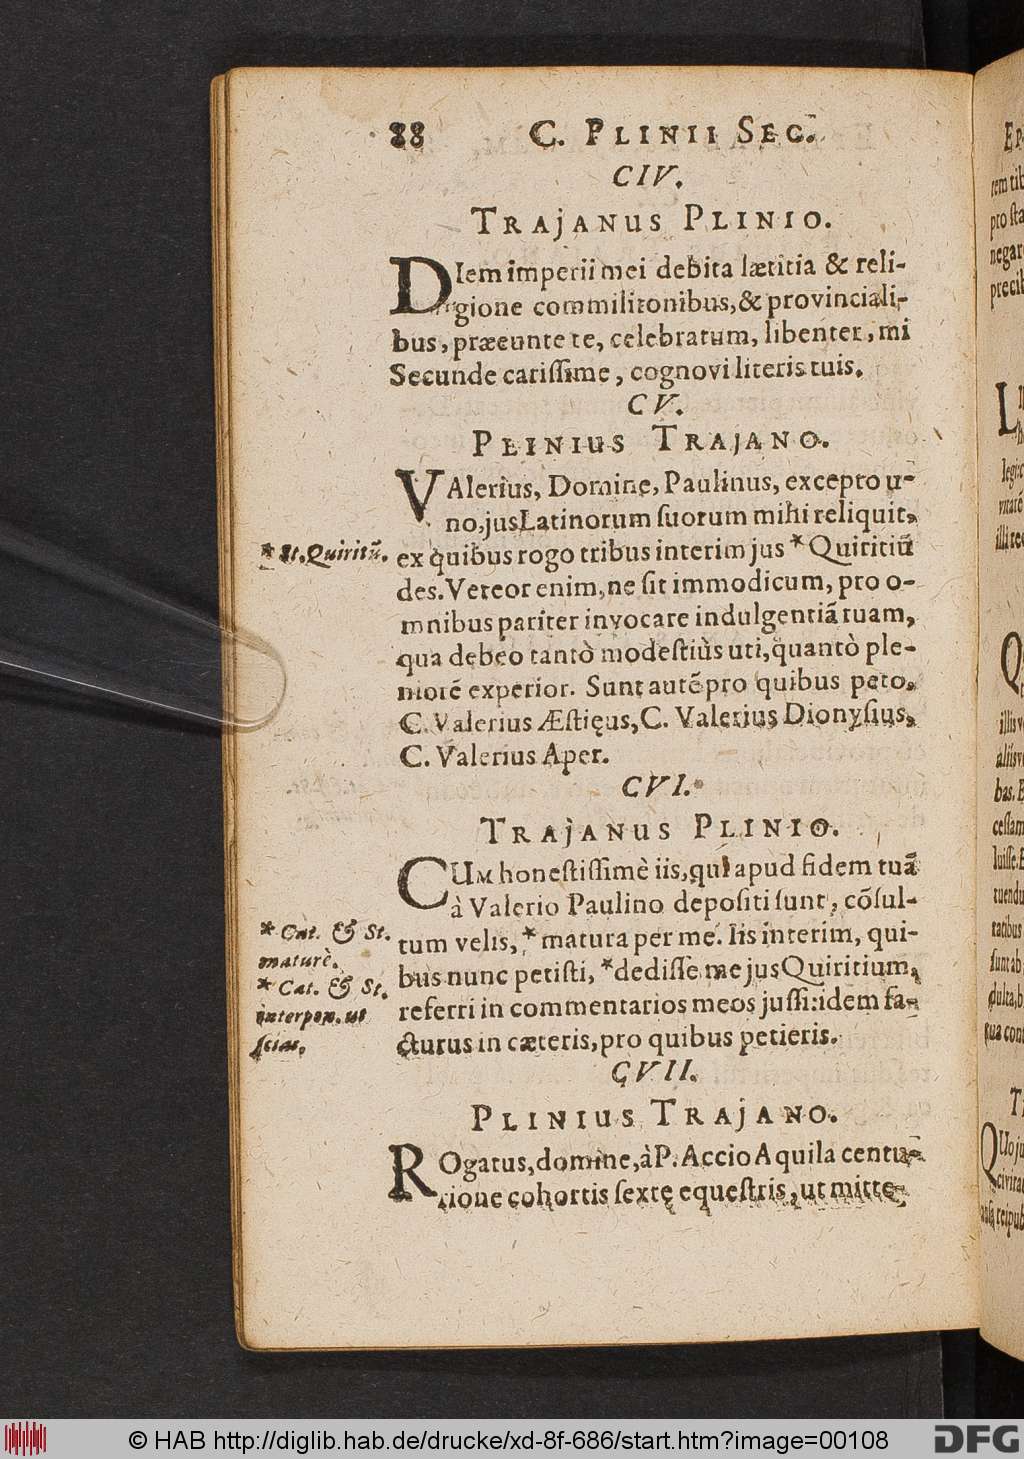 88 C. PLINII SEC.
CIV.
TRAJANUS PLINIO.
DIem imperii mei debita lætitia & reli-
gione commilitonibus, & provinciali-
bus, præeunte te, celebratum, libenter, mi
Secunde carissime, cognovi literis tuis.
CV.
PLINIUS TRAJANO.
VAlerius, Domine, Paulinus, excepto u-
no, jus Latinorum suorum mihi reliquit,
* St. Quiritũ. ex quibus rogo tribus interim jus * Quiritiũ
des. Vereor enim, ne sit immodicum, pro o-
mnibus pariter invocare indulgentiã tuam,
qua debeo tantò modestiùs uti, quantò ple-
niorẽ experior. Sunt autẽ pro quibus peto,
C. Valerius Æstięus, C. Valerius Dionysius,
C. Valerius Aper.
CVI.
TRAJANUS PLINIO.
CUM honestissimè iis, qui apud fidem tuã
à Valerio Paulino depositi sunt, cõsul-
* Cat. & St. maturè.
tum velis, * matura per me. Iis interim, qui-
* Cat. & St. interpon. ut scias.
bus nunc petisti, * dedisse me jus Quiritium,
referri in commentarios meos jussi: idem fa-
cturus in cæteris, pro quibus petieris.
CVII.
PLINIUS TRAJANO.
ROgatus, domine, à P. Accio Aquila centu-
rione cohortis sextę equestris, ut mitte-
© HAB http://diglib.hab.de/drucke/xd-8f-686/start.htm?image=00108
DFG